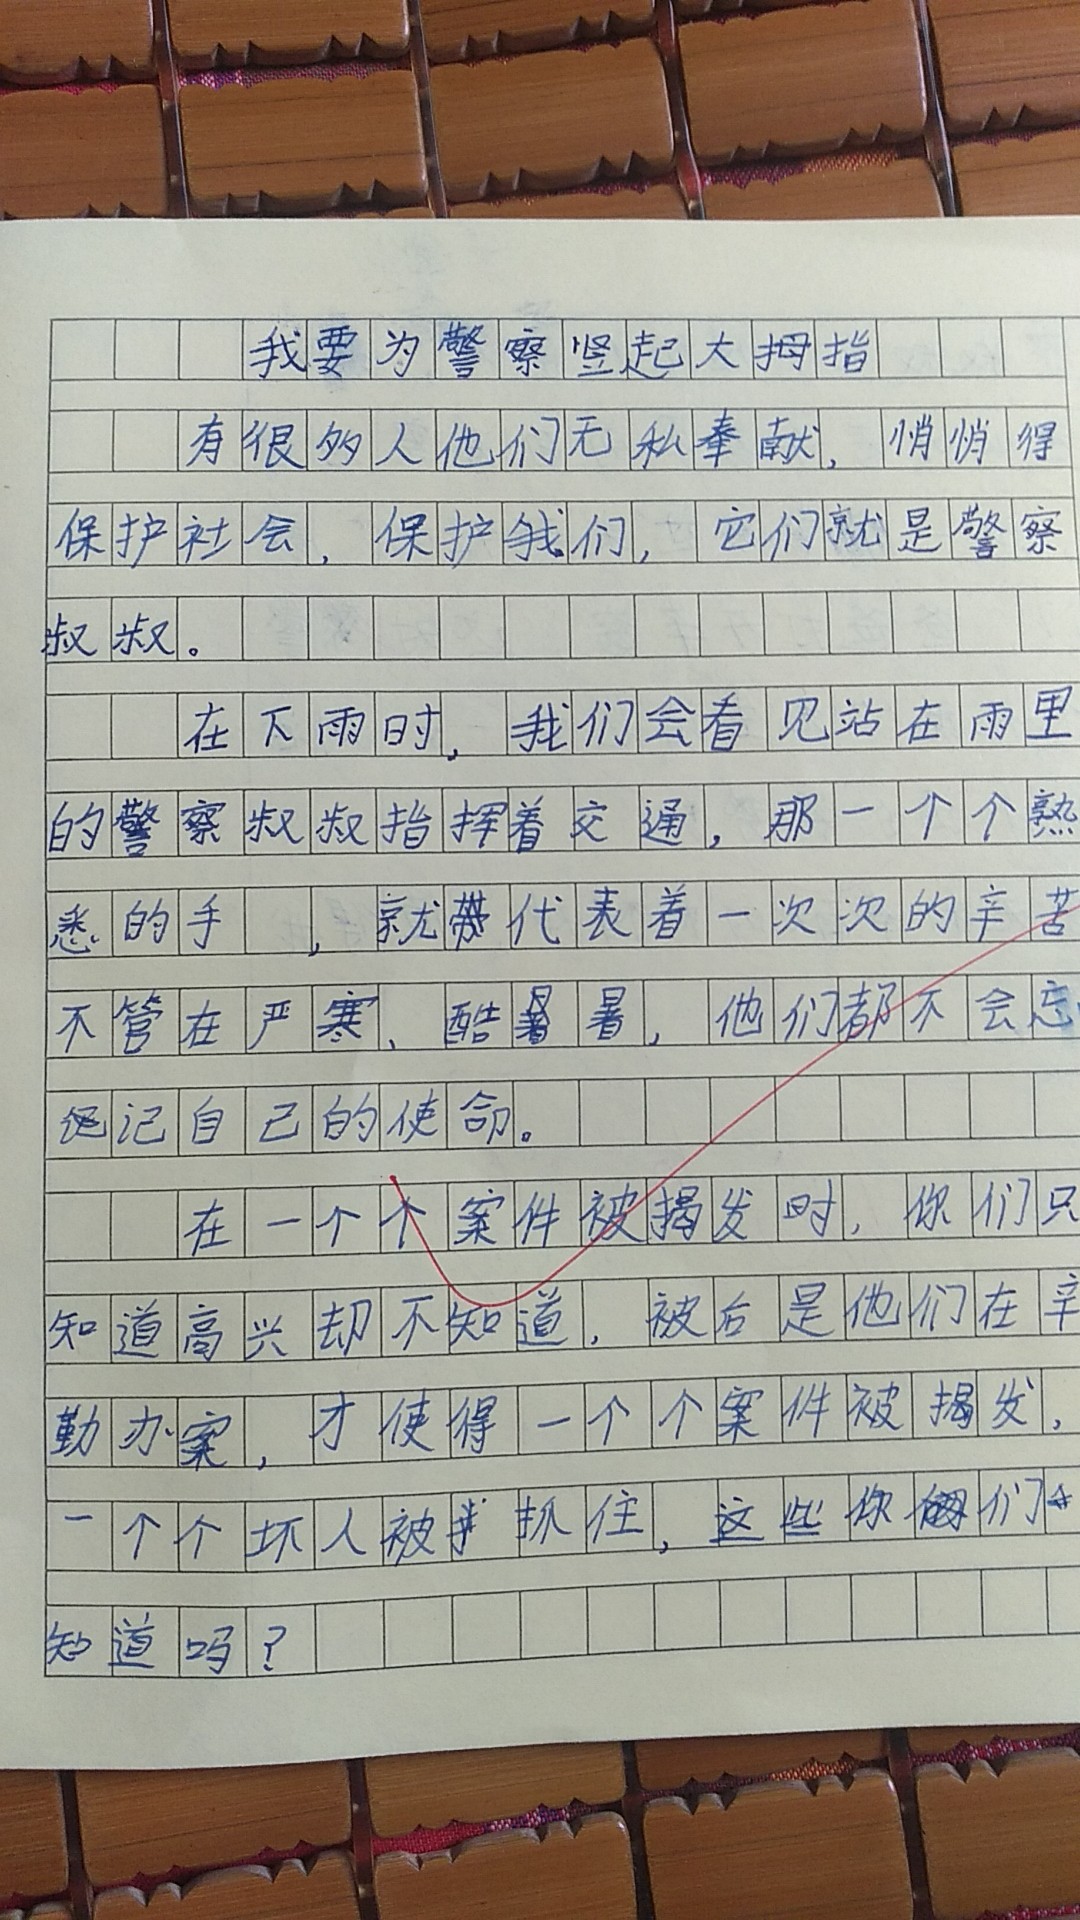 我要为警察竖起大拇指
有很多人他们无私奉献，悄悄得
保护社会，保护我们，它们就是警察
叔叔。
在下雨时，我们会看见站在雨里
的警察叔叔指挥着交通，那一个个熟
悉的手，就代表着一次次的辛苦
不管在严寒、酷暑，他们都不会忘
记自己的使命。
在一个个案件被揭发时，你们只
知道高兴却不知道，被后是他们在辛
勤办案，才使得一个个案件被揭发，
一个个坏人被抓住，这些你们
知道吗？